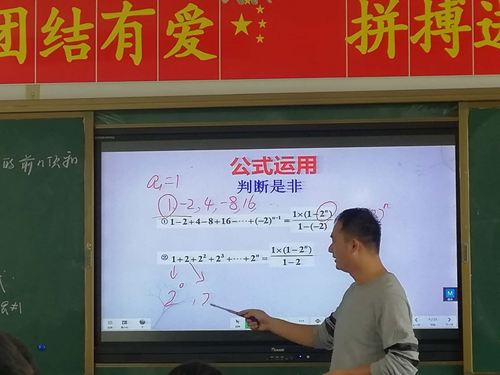 团结有爱 拼搏
的前n项和
公式运用
判断是非
a₁=1
1,-2,4,-8,16
① 1-2+4-8+16-⋯+(-2)ⁿ⁻¹=1×(1-2ⁿ)/1-(-2)
② 1+2+2²+2³+⋯+2ⁿ=1×(1-2ⁿ)/1-2
2⁰,2